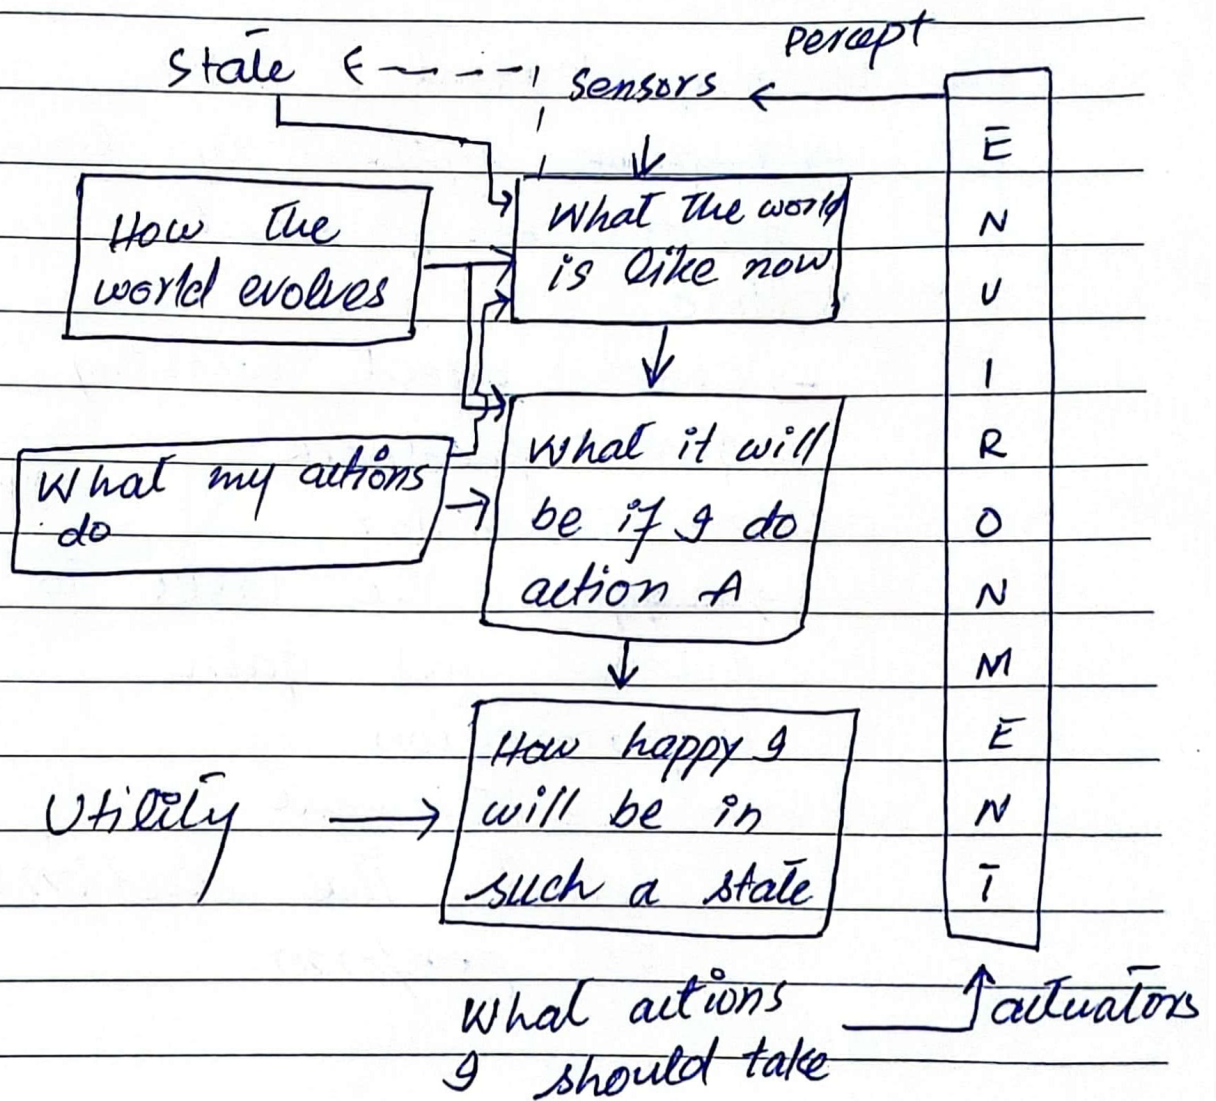 percept
State
sensors
How the
world evolves
What the world
is like now
What my actions
do
What it will
be if I do
action A
Utility
How happy I
will be in
such a state
What actions
I should take
actuators
E
N
V
I
R
O
N
M
E
N
T